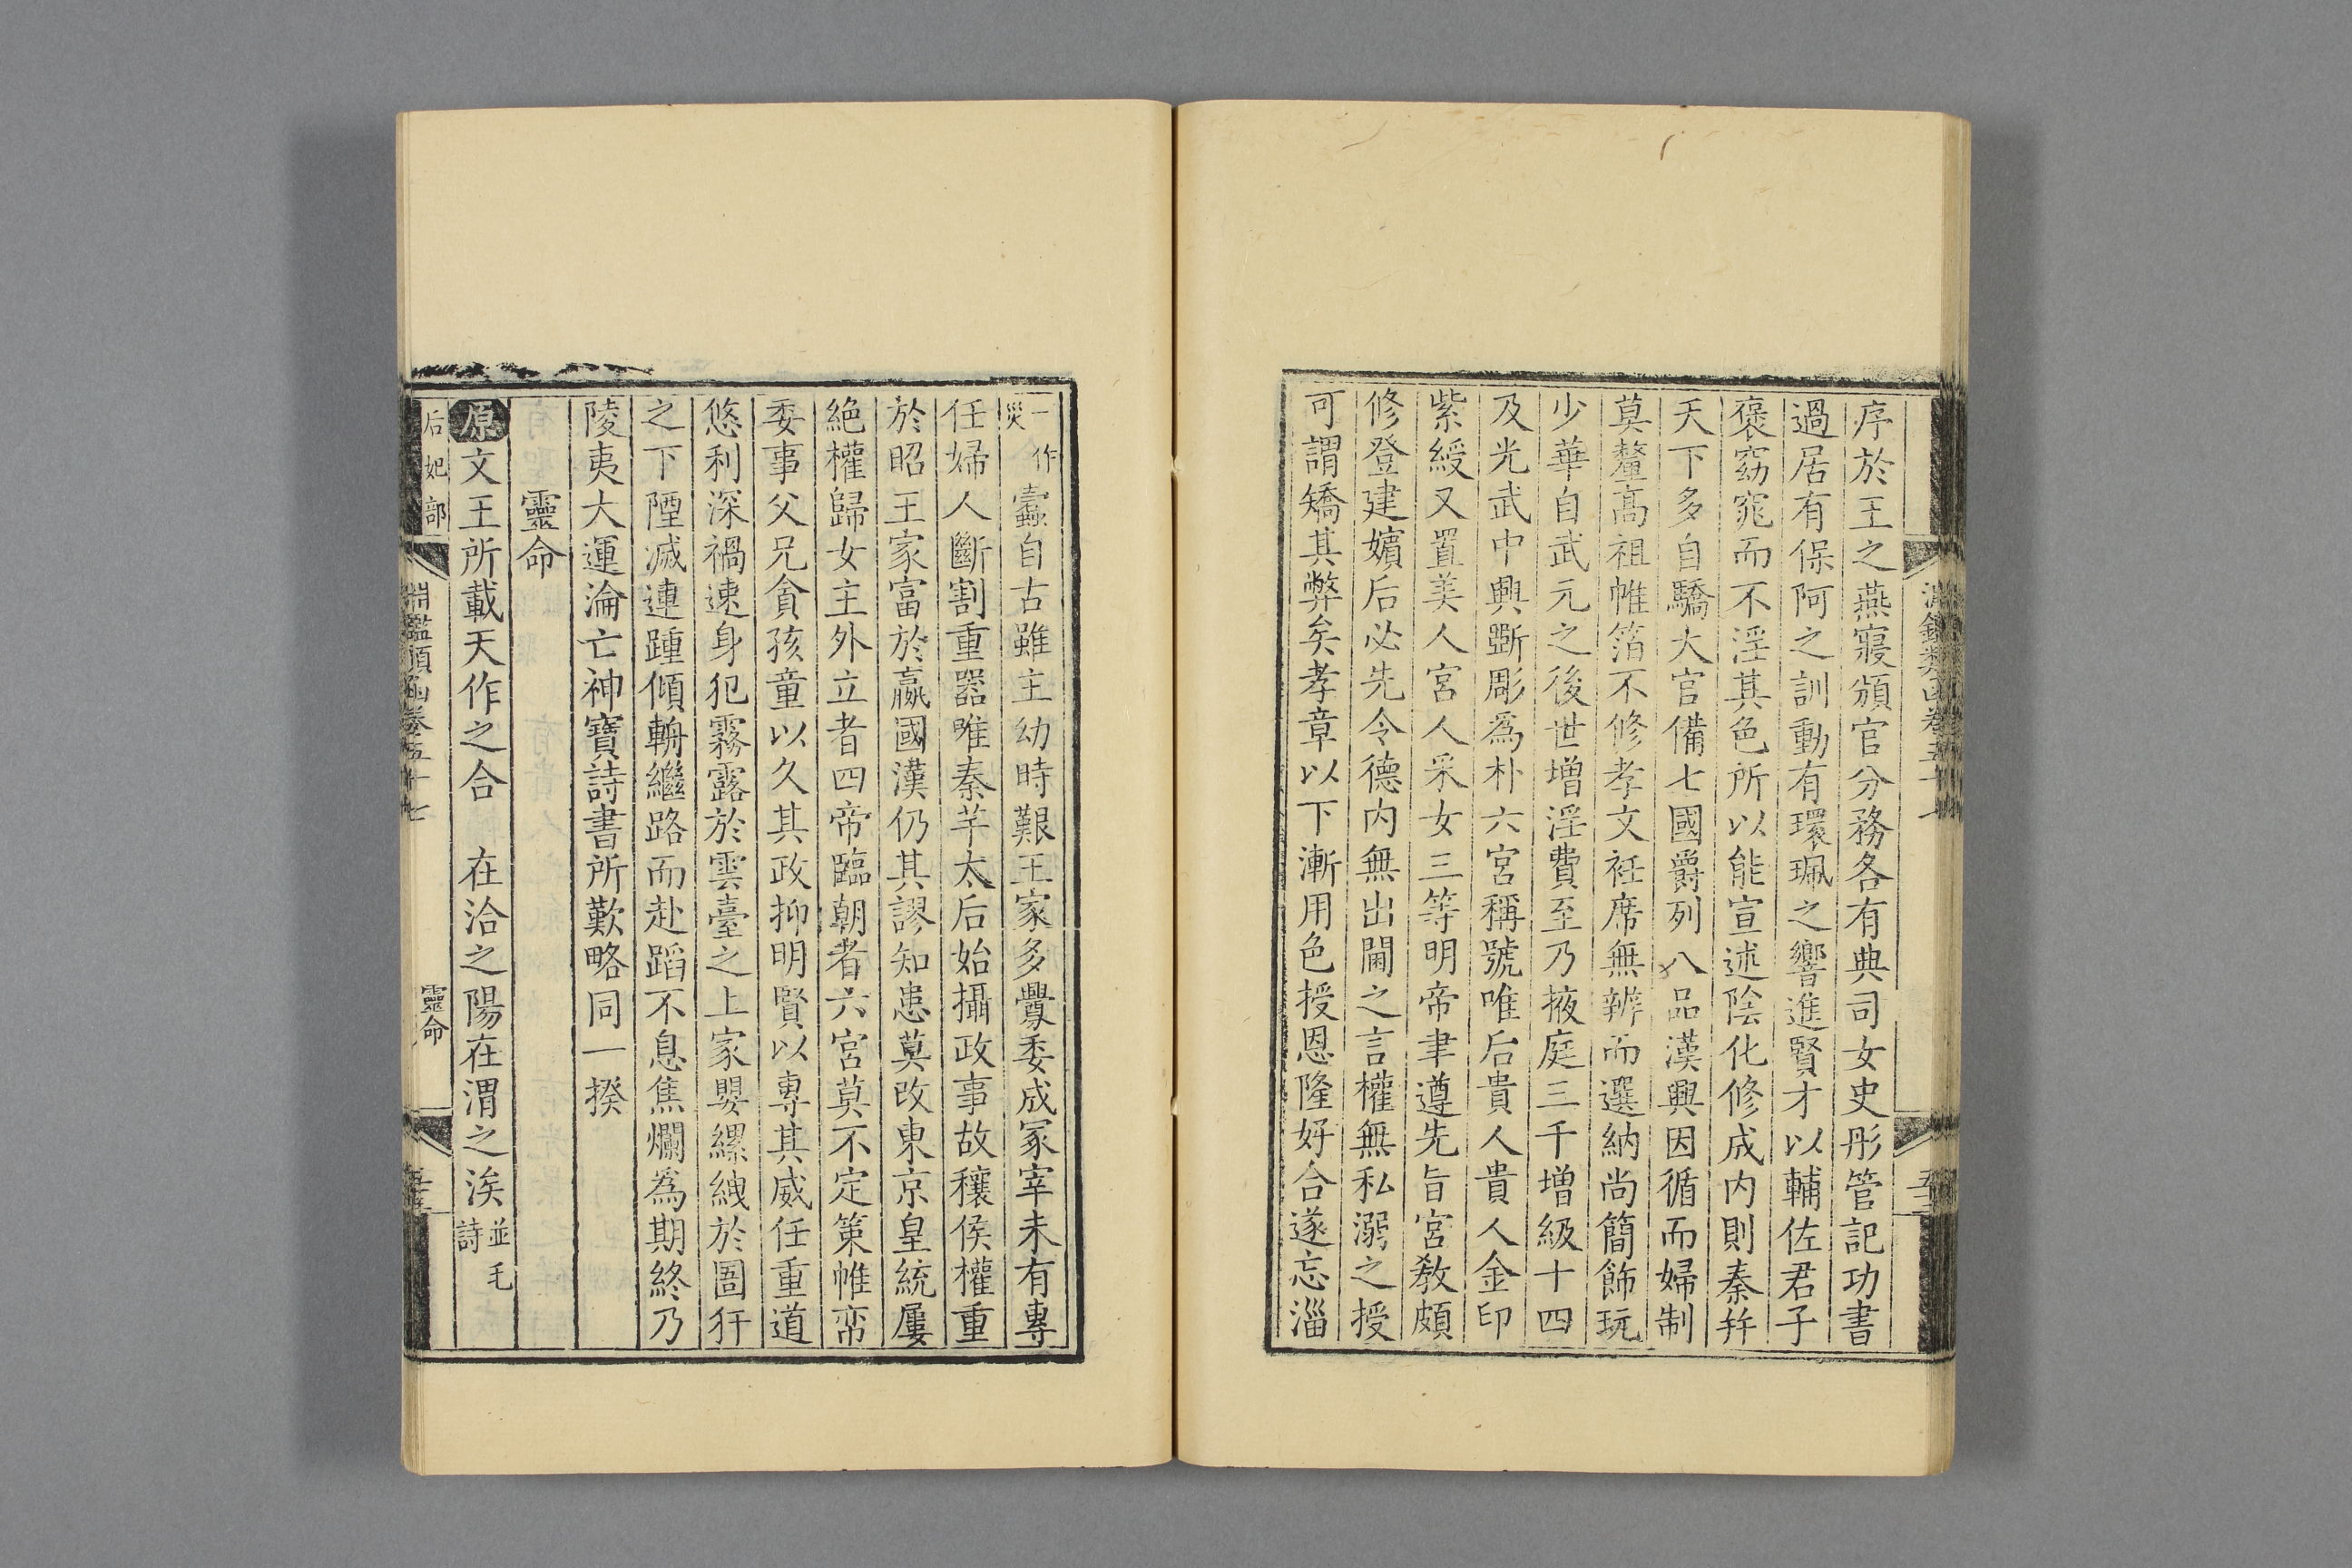 序於王之燕寢頒官分務各有典司女史彤管記功書
過居有保阿之訓動有環珮之響進賢才以輔佐君子
褒窈窕而不淫其色所以能宣述陰化修成内則秦幷
天下多自驕大官備七國爵列八品漢興因循而婦制
莫釐高祖帷箔不修孝文袵席無辨而選納尚簡飾玩
少華自武元之後世增淫費至乃掖庭三千增級十四
及光武中興斲彫爲朴六宮稱號唯后貴人貴人金印
紫綬又置美人宮人采女三等明帝聿遵先旨宮教頗
修登建嬪后必先令德内無出閫之言權無私溺之授
可謂矯其弊矣孝章以下漸用色授恩隆好合遂忘淄
一作
災
蠹自古雖主幼時艱王家多釁委成冢宰未有專
任婦人斷割重器唯秦芊太后始攝政事故穰侯權重
於昭王家富於嬴國漢仍其謬知患莫改東京皇統屢
絶權歸女主外立者四帝臨朝者六宮莫不定策帷帟
委事父兄貪孩童以久其政抑明賢以專其威任重道
悠利深禍速身犯霧露於雲臺之上家嬰縲紲於圄犴
之下陻滅連踵傾輈繼路而赴蹈不息焦爛爲期終乃
陵夷大運淪亡神寶詩書所歎略同一揆
靈命
原文王所載天作之合 在洽之陽在渭之涘
並毛
詩
后妃部
淵鑑類函卷五十七
靈命